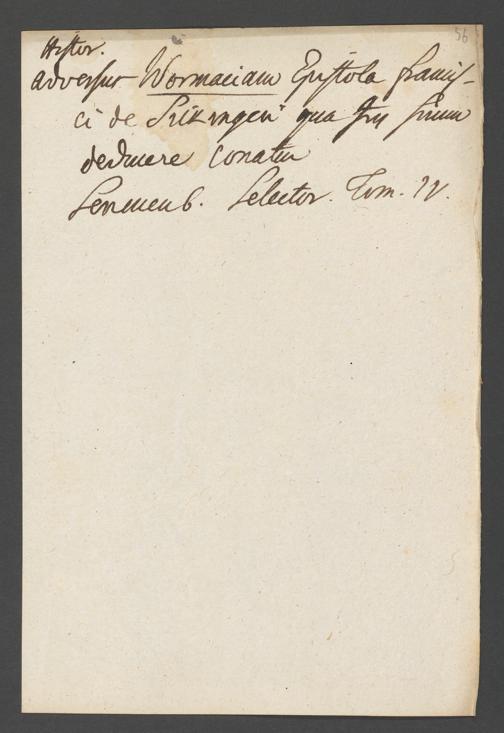 56
Histor.
adversus Wormaciam Epistola Francis-
ci de Sickingen qua Jus suum
deducere conatur
Senckenb. Selector. Tom. IV.